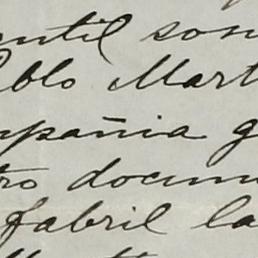 entil son
ablo Mart
mpañia g
tro docum
fabril la